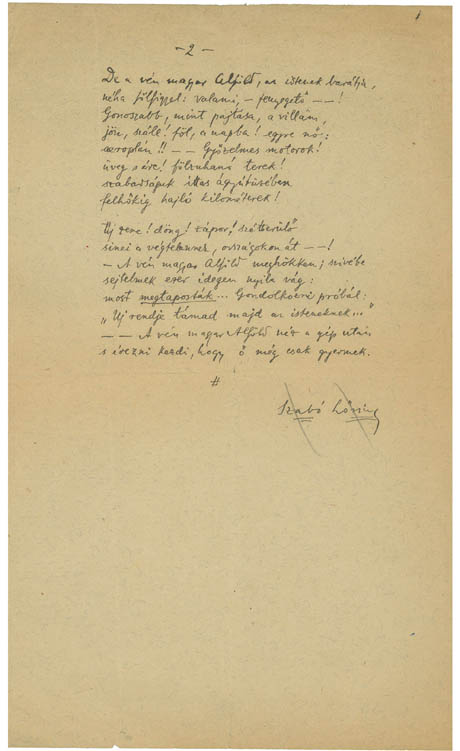 1
— 2 —
De a vén magyar Alföld, az istenek barátja,
néha fölfigyel: valami, – fenyegető — —!
Gonoszabb, mint pajtása, a villám,
jön, száll! föl, a napba! egyre nő:
aeroplán!! — — Győzelmes motorok!
üveg s érc! fölzuhanó terek!
szabadságuk ittas ágyútüzében
felhőkig hajló kilométerek!
Új zene! döng! zápor! szétterülő
sinei a végtelennek, országokon át — —!
– A vén magyar Alföld meghökken; szivébe
sejtelmek ezer idegen nyila vág:
most megtaposták... Gondolkozni próbál:
„Uj rendje támad majd az isteneknek..."
— — A vén magyar Alföld néz a gép után
s érezni kezdi, hogy ő még csak gyermek.
#
Szabó Lőrinc